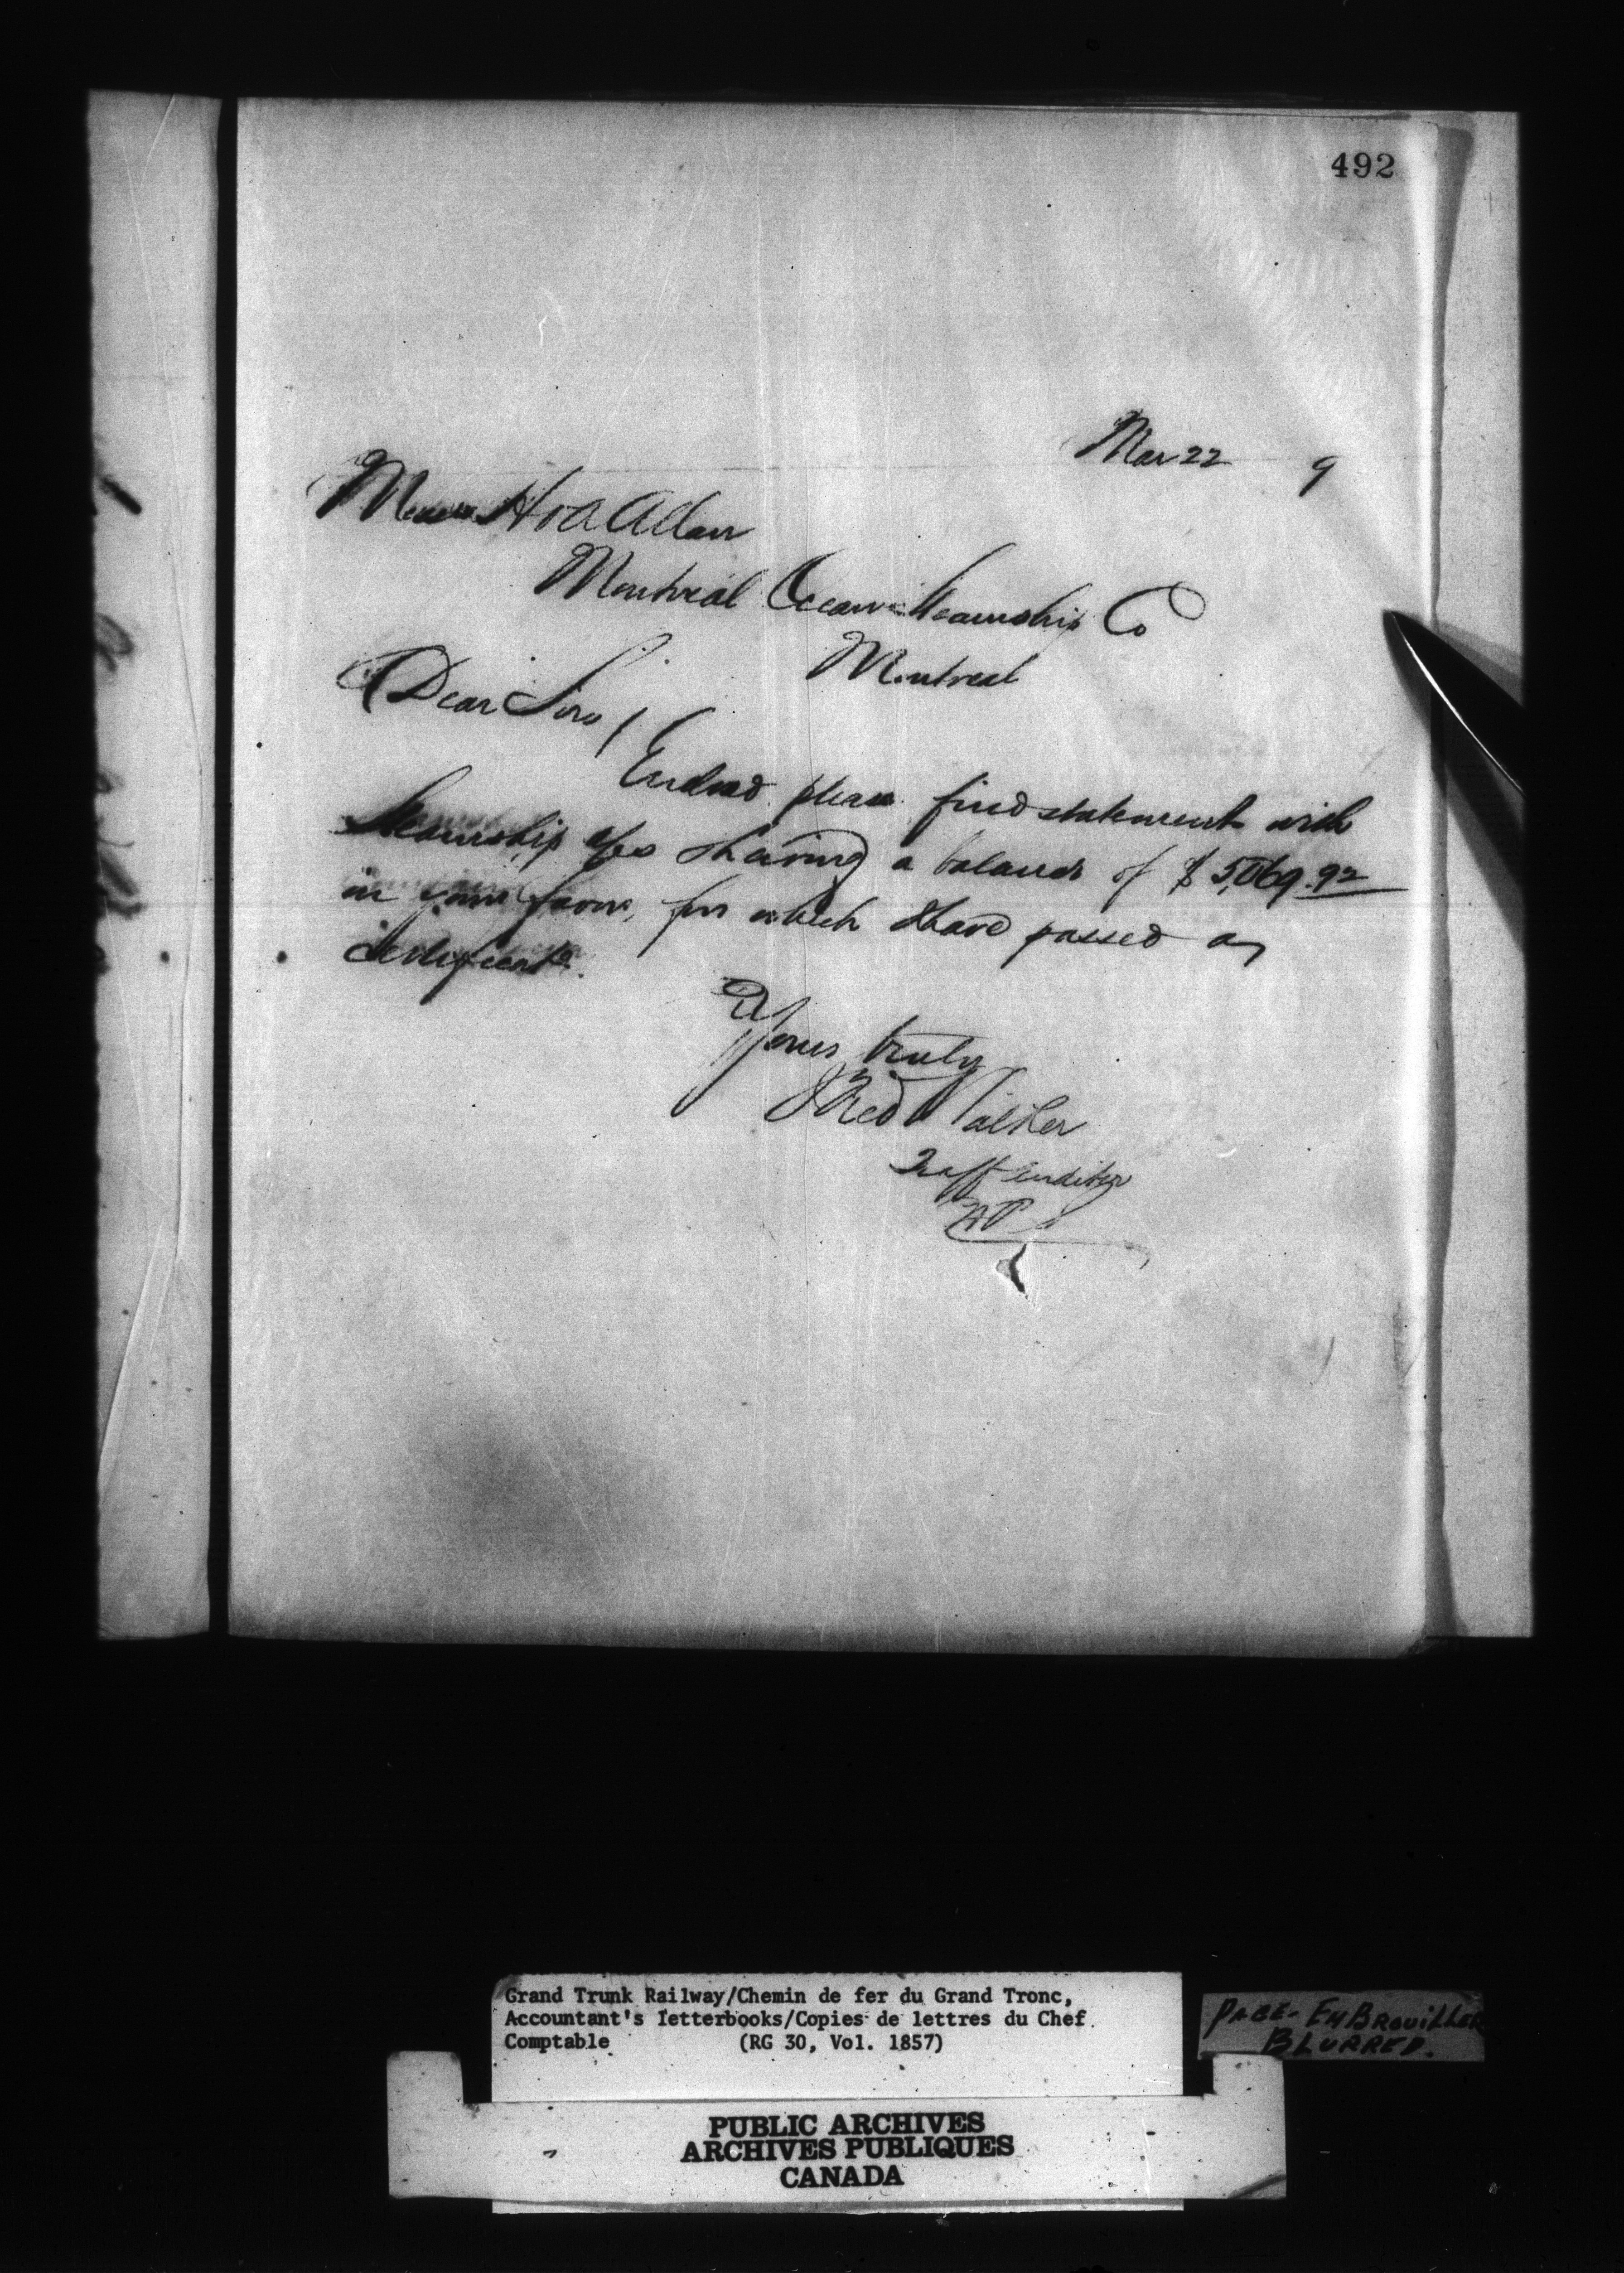 492
Mar 22 9
Messrs H & A Allan
Montreal Ocean Steamship Co
Montreal
Dear Sirs,
Enclosed please find statement with
Steamship showing a balance of $ 5,069.92
in your favor, for which I have passed a
Certificate.
Yours truly
Fred Walker
Traff Auditor
Grand Trunk Railway/Chemin de fer du Grand Tronc,
Accountant's letterbooks/Copies de lettres du Chef
Comptable (RG 30, Vol. 1857)
PAGE - EMBROUILLER
BLURRED.
PUBLIC ARCHIVES
ARCHIVES PUBLIQUES
CANADA